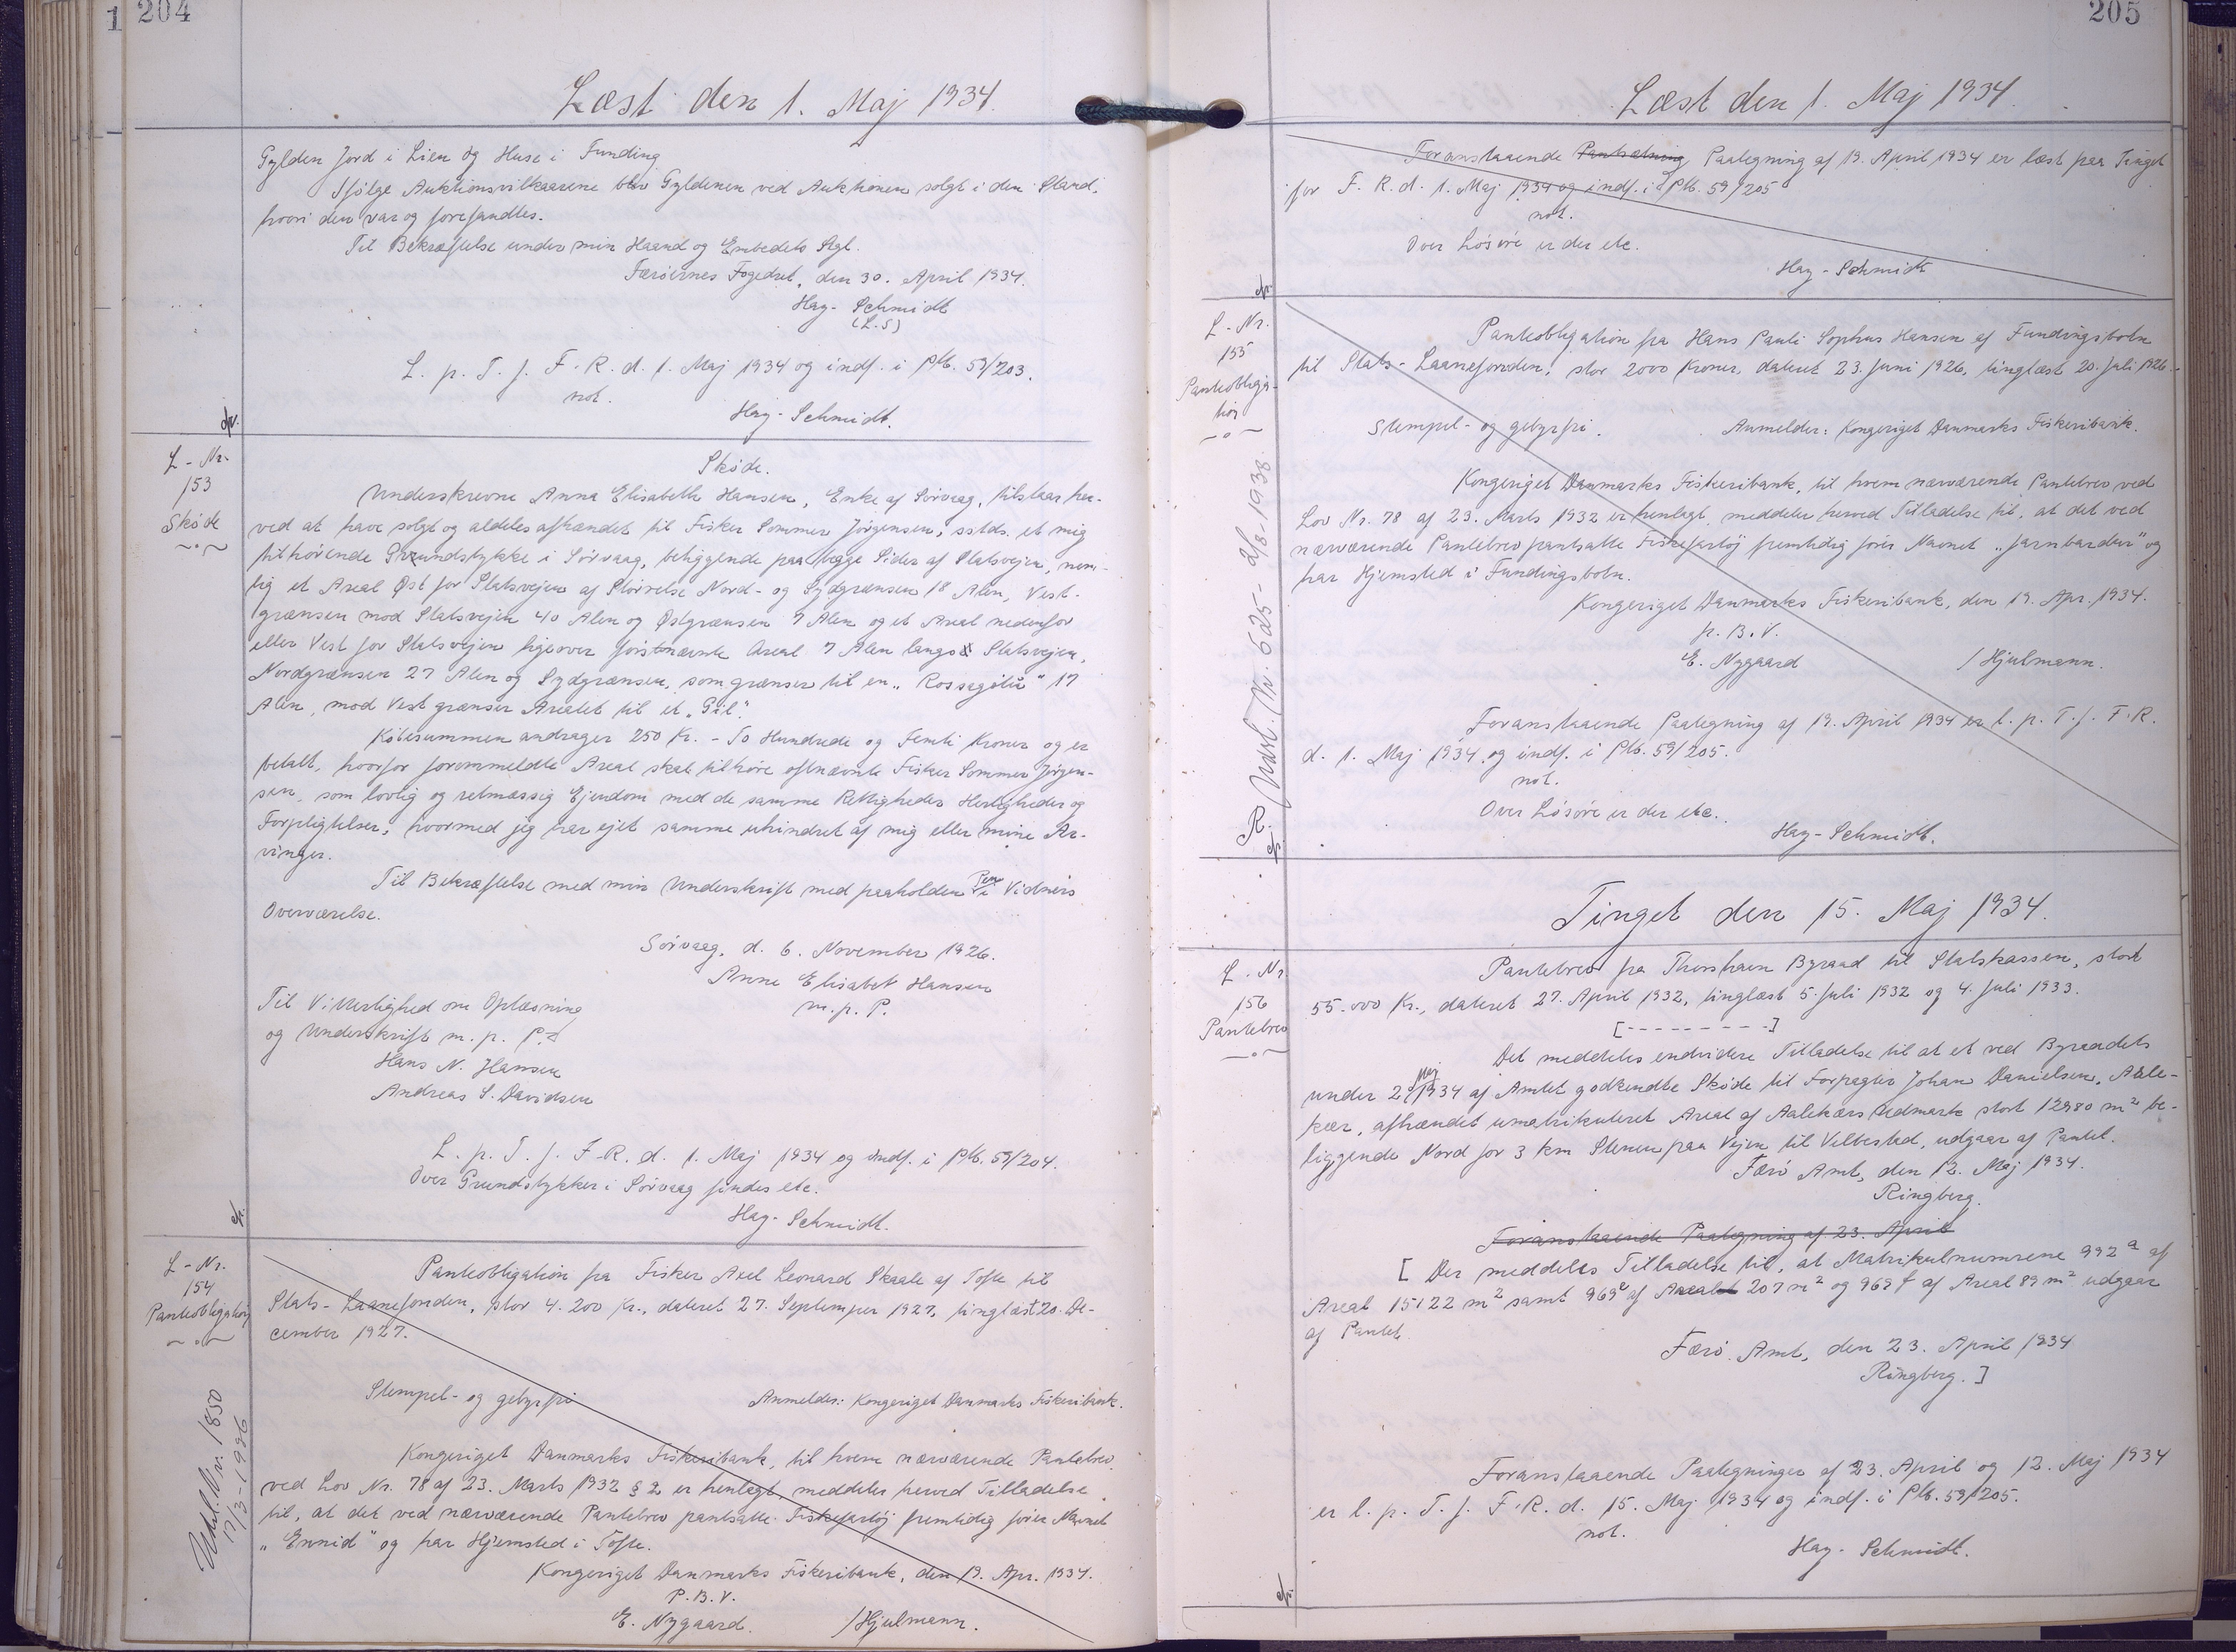 204
Læst den 1. Maj 1934.
Gylden Jord i Lien og Huse i Funding
Ifølge Auktionsvilkaarene blev Gyldenen ved Auktionen solgt i den Stand,
hvori den var og forefandtes.
Til Bekræftelse under min Haand og Embedets Segl.
Færøernes Fogedret, den 30. April 1934.
Hay-Schmidt
(L.S)
L. p. T. f. F. R. d. 1. Maj 1934 og indf. i Ptb. 59/203.
not.
Hay-Schmidt.
L-Nr.
153
Skøde
Skøde.
Underskrevne Anna Elisabeth Hansen, Enke af Sörvaag, tilstaar her-
ved at have solgt og aldeles afhændet til Fisker Sommer Jörgensen, sstds. et mig
tilhørende Grundstykke i Sörvaag, beliggende paa begge Sider af Statsvejen, nem-
lig et Areal Øst for Statsvejen af Störrelse Nord- og Sydgrænsen 18 Alen, Vest-
grænsen mod Statsvejen 40 Alen og Østgrænsen 7 Alen og et Areal nedenfor
eller Vest for Statsvejen ligeover förstnævnte Areal 7 Alen langs Statsvejen,
Nordgrænsen 27 Alen og Sydgrænsen, som grænser til en "Rossagötu" 17
Alen, mod Vest grænser Arealet til et "Gil".
Köbesummen andrager 250 Kr. - To Hundrede og Femti Kroner og er
betalt, hvorfor forommeldte Areal skal tilhöre oftnævnte Fisker Sommer Jörgen-
sen, som lovlig og retmæssig Ejendom med de samme Rettigheder Herligheder og
Forpligtelser, hvormed jeg har ejet samme uhindret af mig eller mine Ar-
vinger.
Til Bekræftelse med min Underskrift med paaholden Pen i Vidners
Overværelse.
Sörvaag, d. 6. November 1926.
Anne Elisabet Hansen
m. p. P.
Til Vitterlighed om Oplæsning
og Underskrift m. p. P.
Hans N. Hansen
Andreas S. Davidsen
L. p. T. f. F. R. d. 1. Maj 1934 og indf. i Ptb. 59/204.
Over Grundstykker i Sörvaag findes etc.
Hay-Schmidt.
L-Nr.
154
Pantobligation
Udsl. Nr. 1850
17/3-1936
Pantobligation fra Fisker Axel Leonard Skaale af Tofte til
Stats-Laanefonden, stor 4.200 Kr., dateret 27. September 1927, tinglæst 20. De-
cember 1927.
Stempel- og gebyrfri
Anmelder: Kongeriget Danmarks Fiskeribank.
Kongeriget Danmarks Fiskeribank, til hvem nærværende Pantebrev
ved Lov Nr. 78 af 23. Marts 1932 § 2 er henlagt, meddeler herved Tilladelse
til, at det ved nærværende Pantebrev pantsatte Fiskefartöj fremtidig förer Navnet
"Ennid" og har Hjemsted i Tofte.
Kongeriget Danmarks Fiskeribank, den 19. Apr. 1934.
P. B. V.
E. Nygaard. /Hjulmann.
205
Læst den 1. Maj 1934.
Foranstaaende Pantsætning Paategning af 19. April 1934 er læst paa Tinget
for F. R. d. 1. Maj 1934 og indf. i Ptb. 59/205
not.
Over Lösöre er der etc.
Hay-Schmidt
L-Nr.
155
Pantobliga-
tion
R. Udsl. Nr. 625 - 2/8-1938
Pantobligation fra Hans Pauli Sophus Hansen af Fundingsbotn
til Stats-Laanefonden, stor 2000 Kroner, dateret 23. Juni 1926, tinglæst 20. Juli 1926.
Stempel- og gebyrfri.
Anmelder: Kongeriget Danmarks Fiskeribank.
Kongeriget Danmarks Fiskeribank, til hvem nærværende Pantebrev ved
Lov Nr. 78 af 23. Marts 1932 er henlagt, meddeler herved Tilladelse til, at det ved
nærværende Pantebrev pantsatte Fiskefartöj fremtidig förer Navnet "Jarnbardur" og
har Hjemsted i Fundingsbotn.
Kongeriget Danmarks Fiskeribank, den 19. Apr. 1934.
p. B. V.
E. Nygaard /Hjulmann.
Foranstaaende Paategning af 19. April 1934 er l. p. T. f. F. R.
d. 1. Maj 1934 og indf. i Ptb. 59/205.
not.
Over Lösöre er der etc.
Hay-Schmidt.
Tinget den 15. Maj 1934.
L-Nr.
156
Pantebrev
Pantebrev fra Thorshavn Byraad til Statskassen, stort
55.000 Kr., dateret 27. April 1932, tinglæst 5. Juli 1932 og 4. Juli 1933.
[----------]
Det meddeles endvidere Tilladelse til at et ved Byraadets
under 2/Maj 1934 af Amtet godkendte Skøde til Forpagter Johan Danielsen, Aale-
kær, afhændet umatrikuleret Areal af Aalekærs Udmark stort 12980 m² be-
liggende Nord for 3 km Stenen paa Vejen til Velbestad, udgaar af Pantet.
Færö Amt, den 12. Maj 1934.
Ringberg.
Foranstaaende Paategning af 23. April
[ Der meddeles Tilladelse til, at Matrikulnumrene 992 a af
Areal 15122 m² samt 969 e af Areal 207 m² og 969 f af Areal 89 m² udgaar
af Pantet.
Færö Amt, den 23. April 1934
Ringberg. ]
Foranstaaende Paategninger af 23. April og 12. Maj 1934
er l. p. T. f. F. R. d. 15. Maj 1934 og indf. i Ptb. 59/205.
not.
Hay-Schmidt.